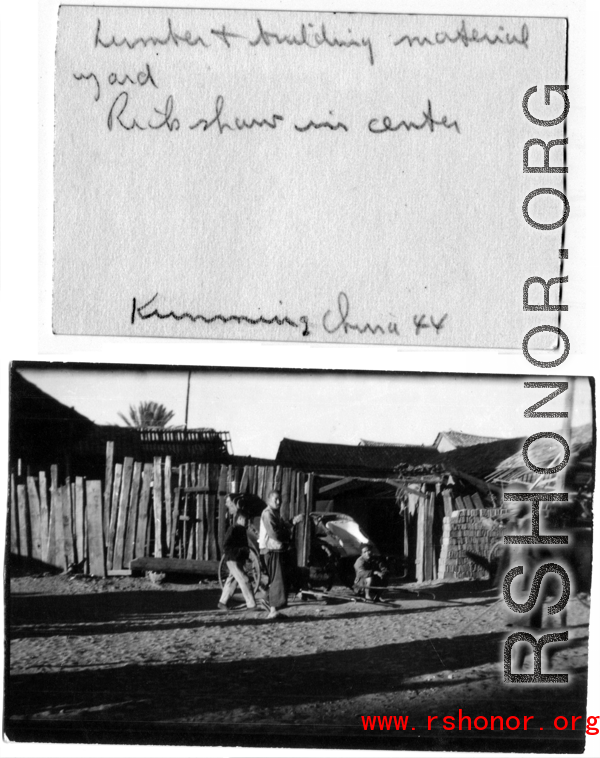 Lumber + building material
yard
Rickshaw in center
Kunming China 44
RSHONOR.ORG
www.rshonor.org